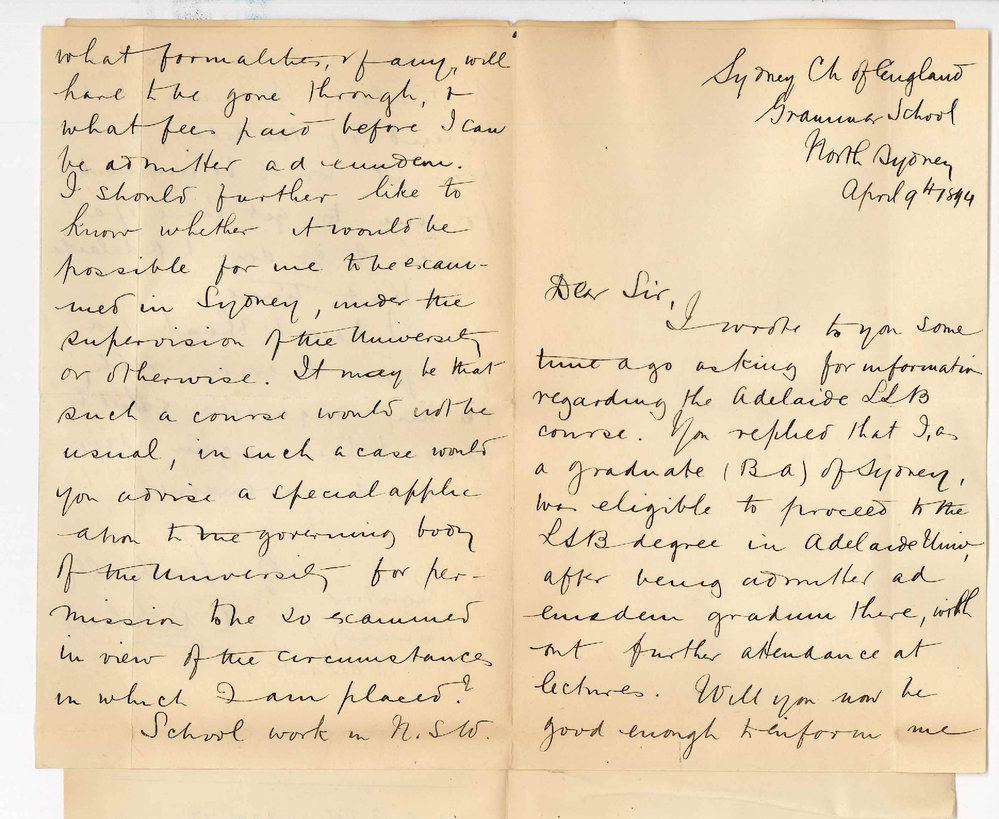 Sydney Ch of England
Grammar School
North Sydney
April 9th 1894
Dear Sir,
I wrote to you some
time ago asking for information
regarding the Adelaide LLB
course. You replied that I, as
a graduate (BA) of Sydney,
was eligible to proceed to the
LLB degree in Adelaide Univ,
after being admitted ad
eundem gradum there, with
out further attendance at
lectures. Will you now be
good enough to inform me
what formalities, if any, will
have to be gone through, &
what fees paid before I can
be admitted ad eundem.
I should further like to
know whether it would be
possible for me to be exam-
ined in Sydney, under the
supervision of the University
or otherwise. It may be that
such a course would not be
usual, in such a case would
you advise a special applic
ation to the governing body
of the University for per-
mission to be so examined
in view of the circumstances
in which I am placed?
School work in N.S.W.